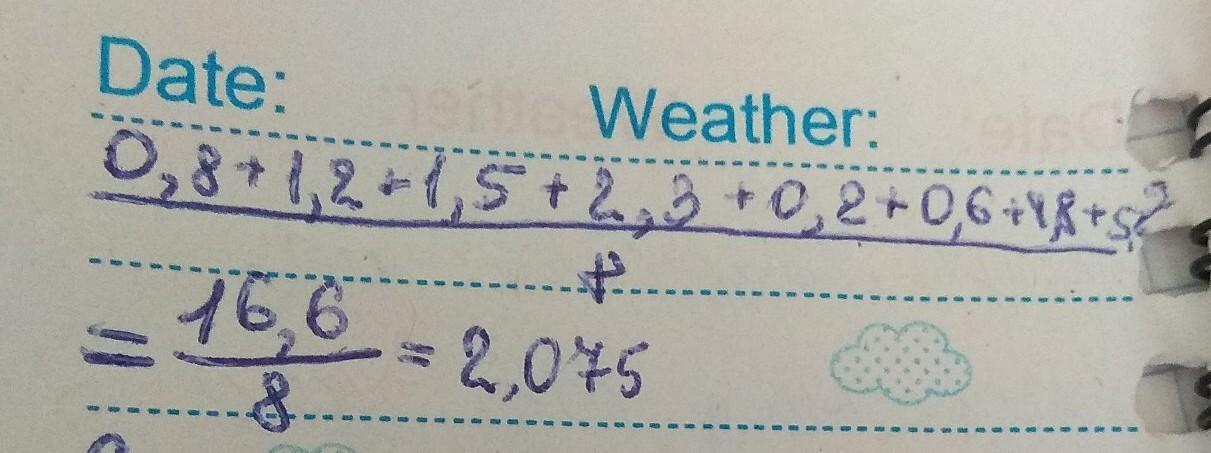 Date: Weather:
0,8+1,2+1,5+2,3+0,2+0,6+4,8+5,2
8
= 16,6
8
= 2,075